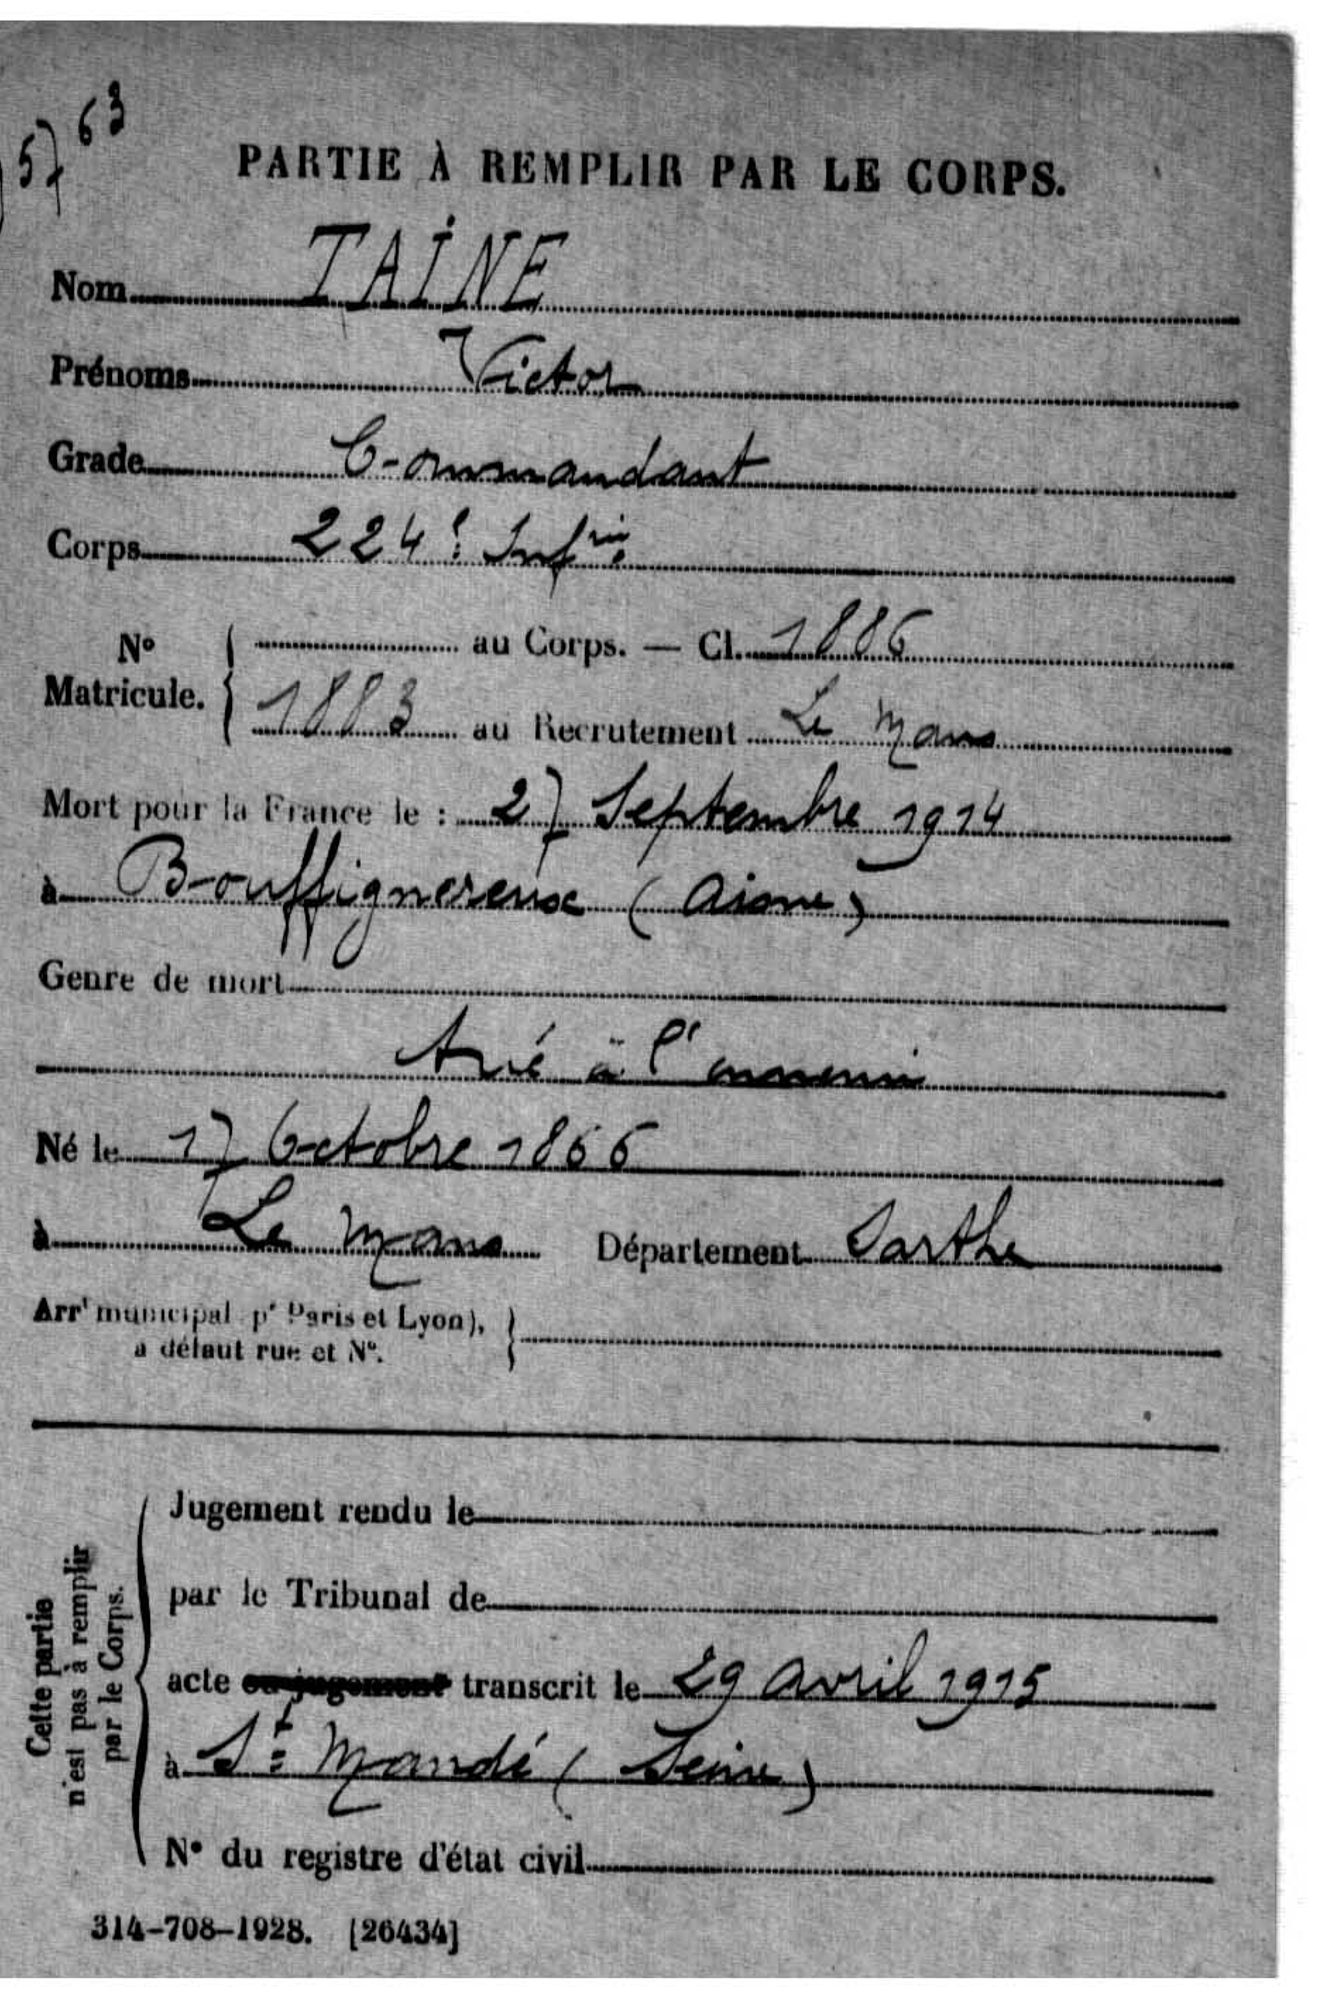 5763
PARTIE À REMPLIR PAR LE CORPS.
Nom TAINE
Prénoms Victor
Grade Commandant
Corps 224e Infrie
No au Corps. — Cl. 1886
Matricule. 1883 au Recrutement Le Mans
Mort pour la France le : 27 Septembre 1914
à Bouffignereux (Aisne)
Genre de mort
tué à l'ennemi
Né le 17 Octobre 1866
à Le Mans Département Sarthe
Arrt municipal pr Paris et Lyon),
à défaut rue et No.
Cette partie
n'est pas à remplir
par le Corps.
Jugement rendu le
par le Tribunal de
acte ou jugement transcrit le 29 avril 1915
à St Mandé (Seine)
No du registre d'état civil
314-708-1928. [26434]